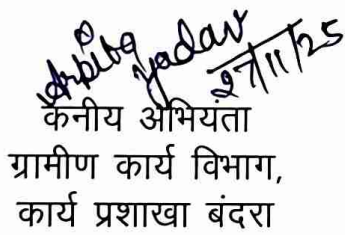 Arpita Yadav
27/11/25
कनीय अभियंता
ग्रामीण कार्य विभाग,
कार्य प्रशाखा बंदरा